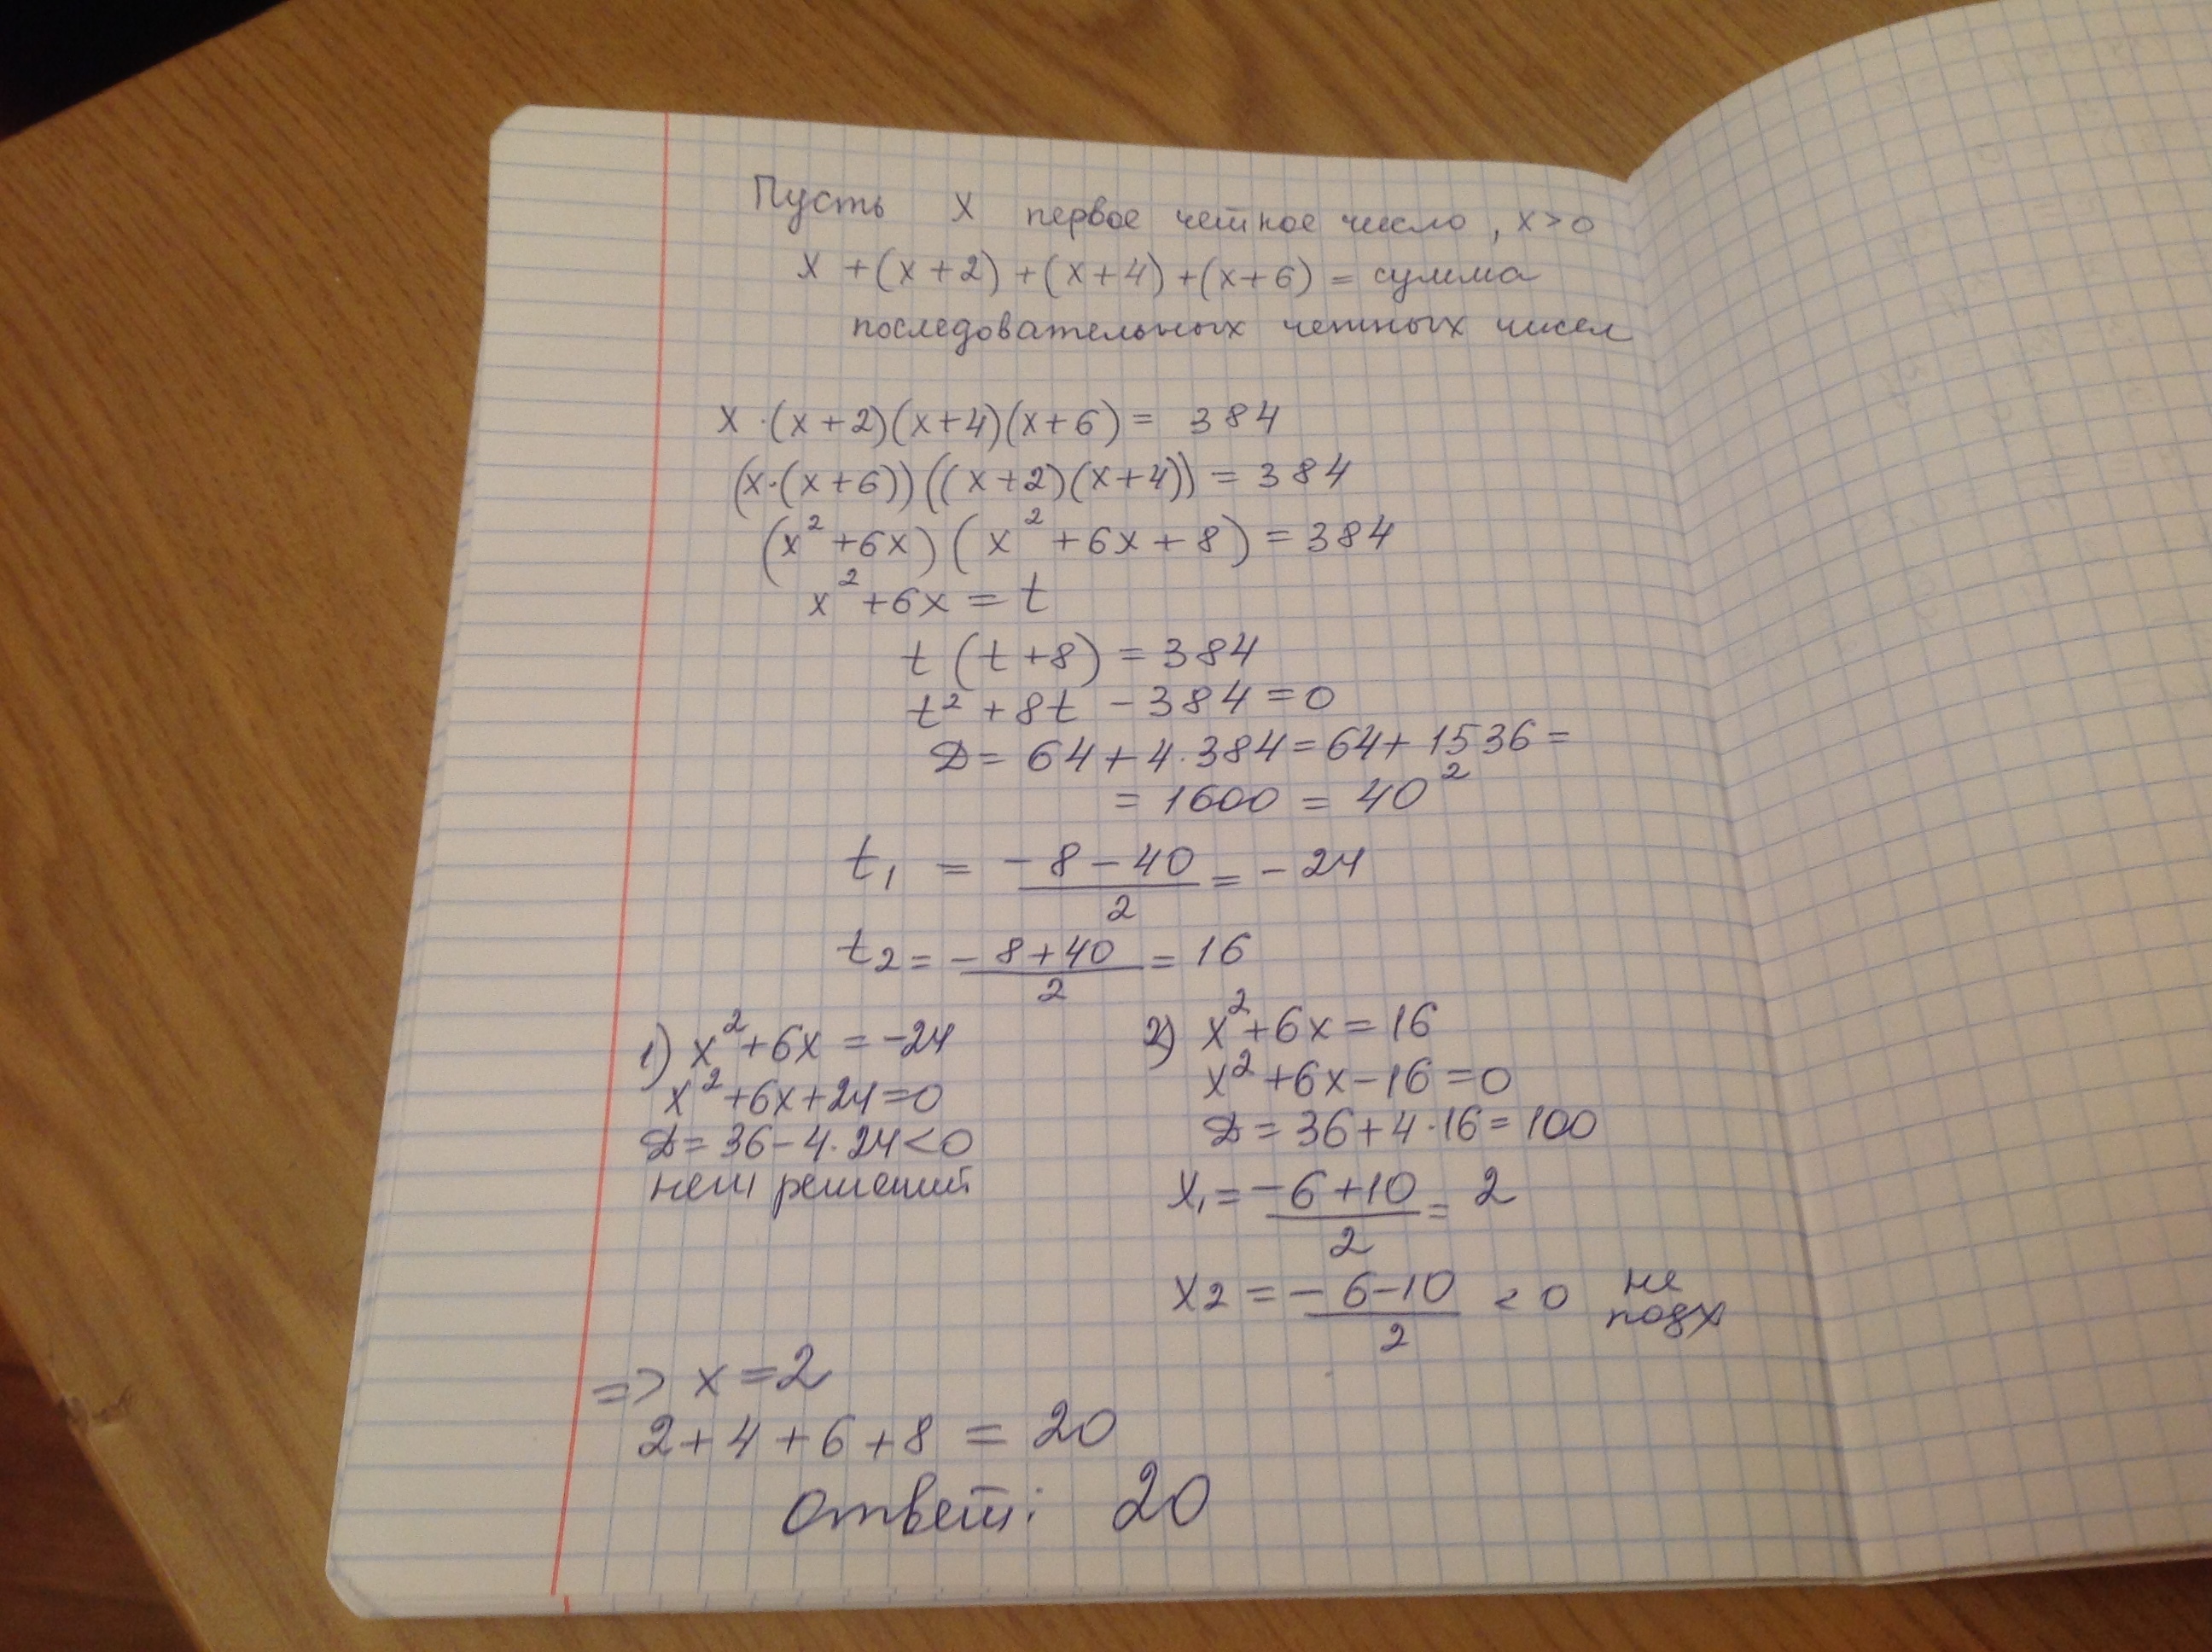 Пусть x первое четное число, x>0
x +(x+2)+(x+4)+(x+6) = сумма
последовательных четных чисел
x·(x+2)(x+4)(x+6)= 384
(x·(x+6))((x+2)(x+4))=384
(x²+6x)(x²+6x+8)=384
x²+6x=t
t(t+8)=384
t²+8t-384=0
D=64+4·384=64+1536=
=1600=40²
t₁ = (-8-40)/2 = -24
t₂ = (-8+40)/2 = 16
1) x²+6x=-24
x²+6x+24=0
D=36-4·24<0
нет решений
2) x²+6x=16
x²+6x-16=0
D=36+4·16=100
x₁=(-6+10)/2=2
x₂=(-6-10)/2 <0 не подх
=> x=2
2+4+6+8=20
Ответ: 20